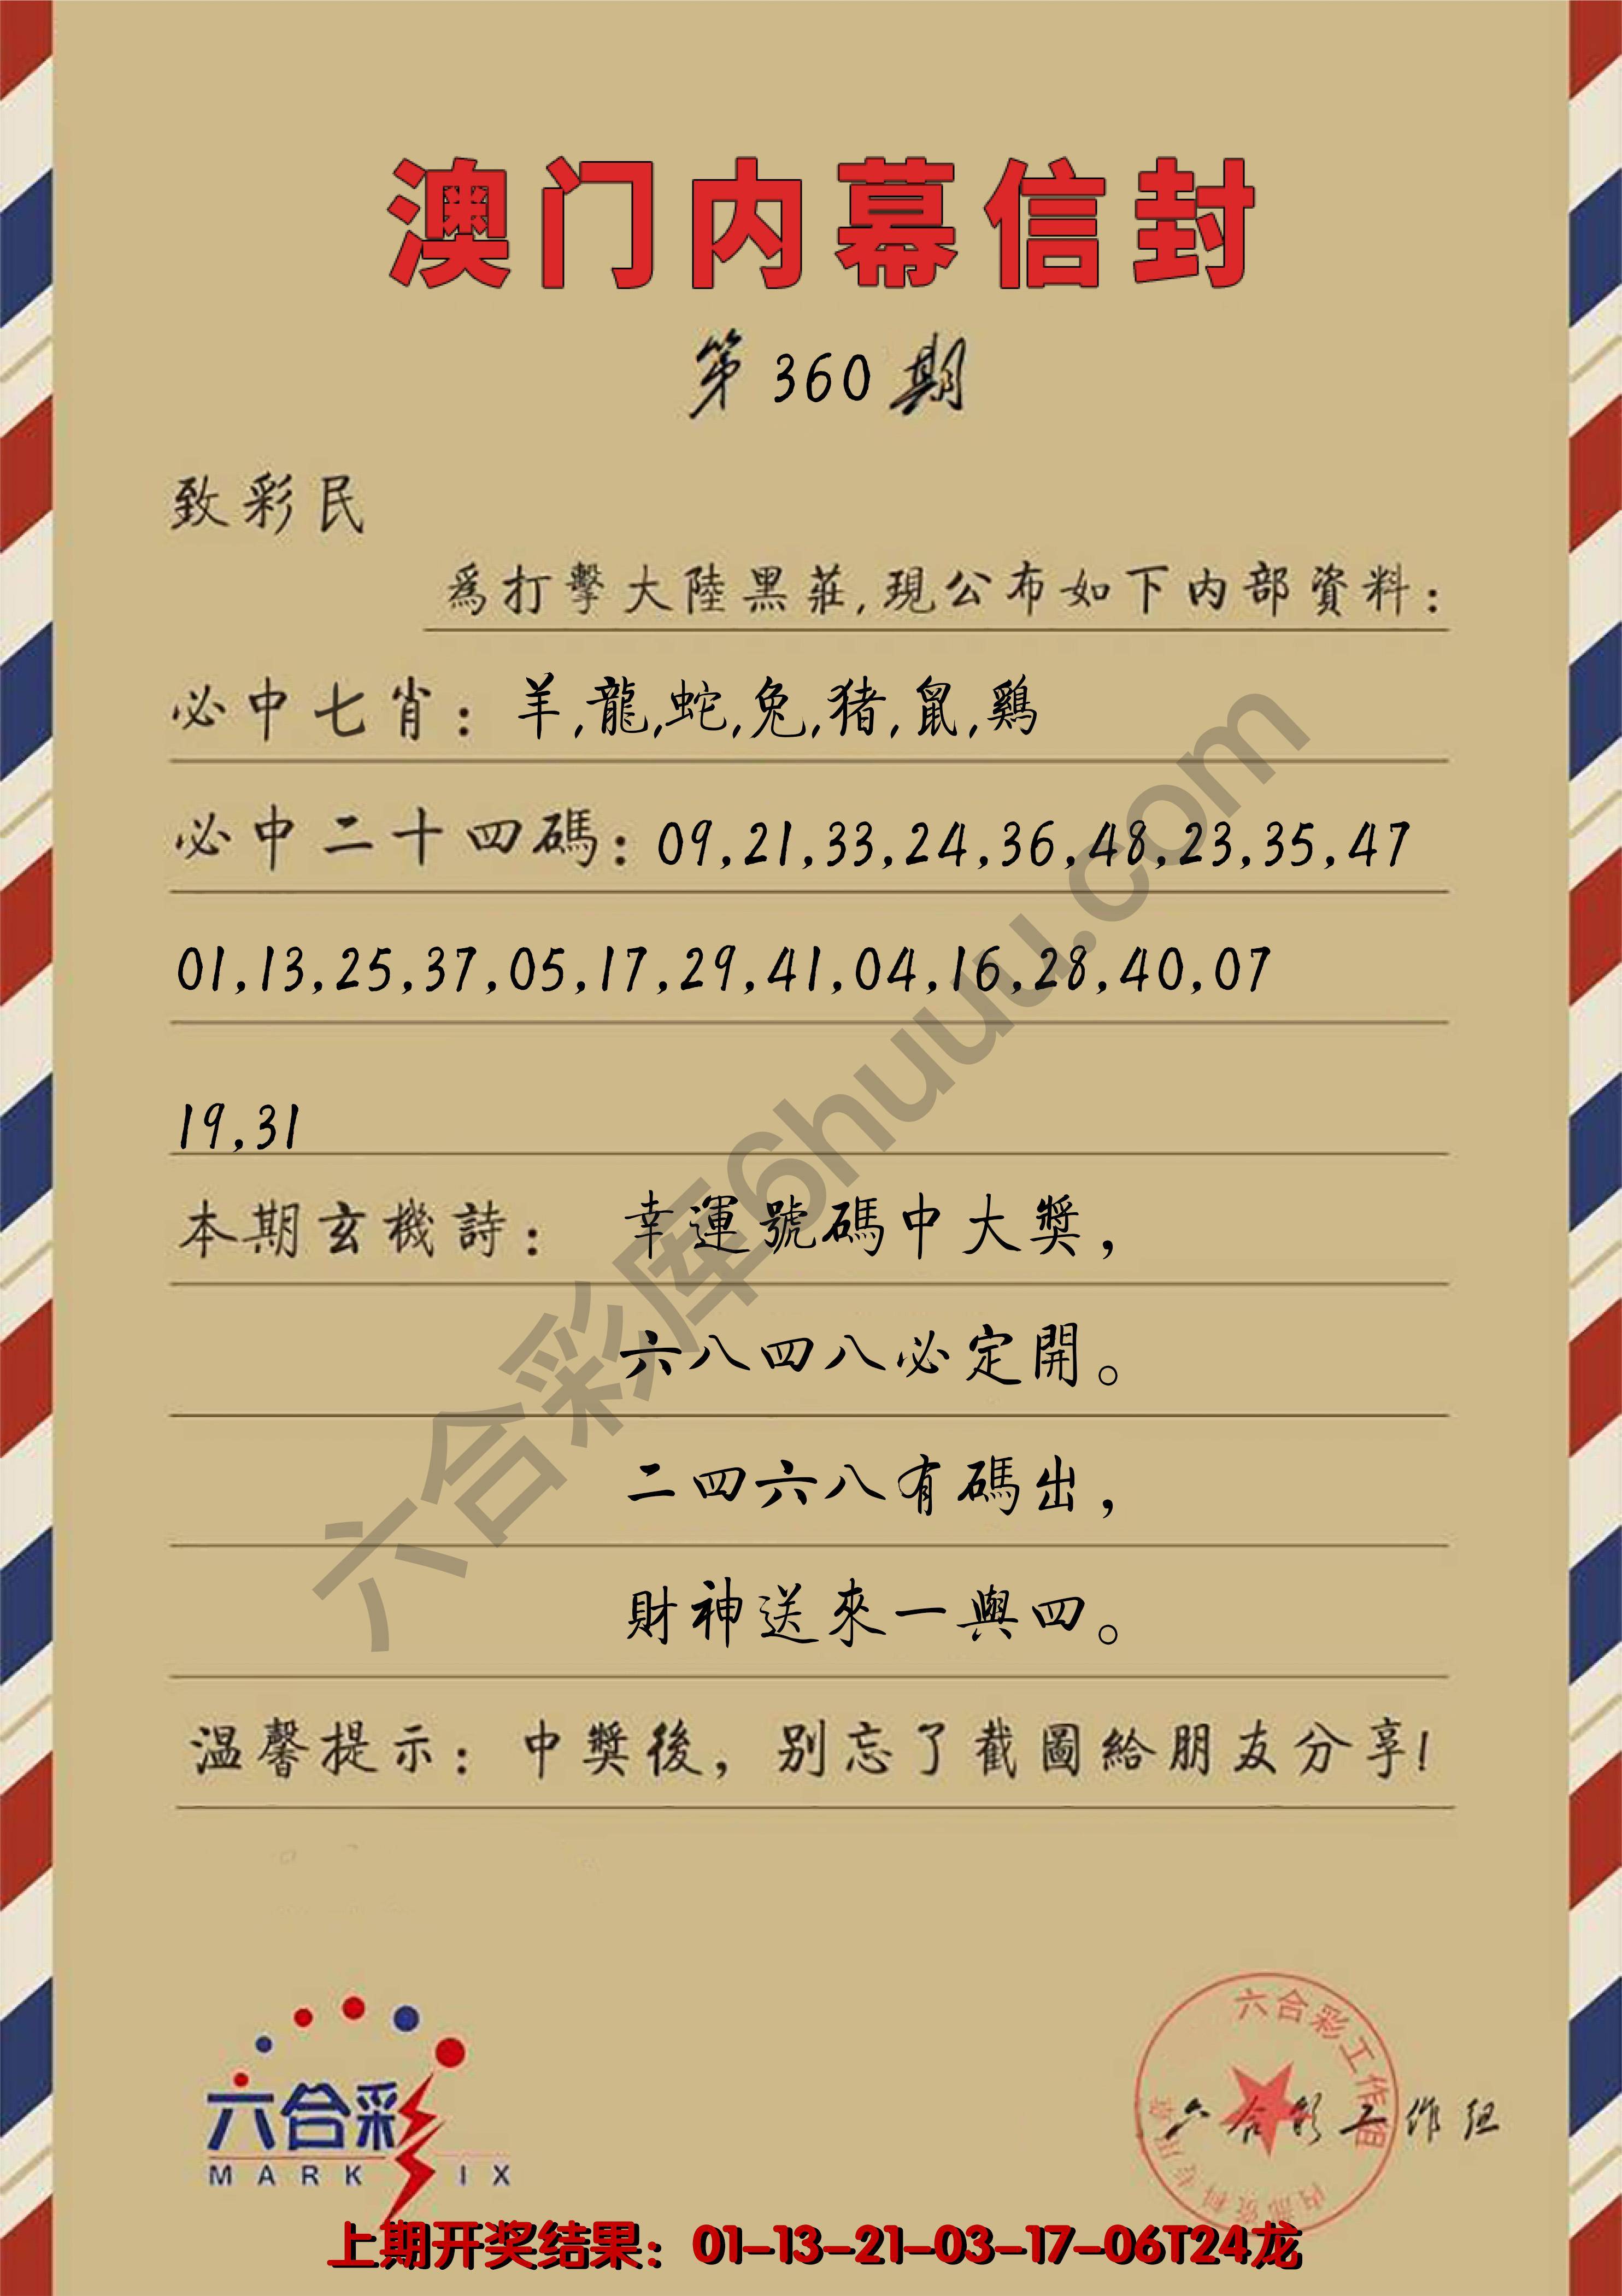 澳门内幕信封
第360期
致彩民
為打擊大陸黑莊,現公布如下内部資料:
必中七肖: 羊,龍,蛇,兔,猪,鼠,鷄
必中二十四碼: 09,21,33,24,36,48,23,35,47
01,13,25,37,05,17,29,41,04,16,28,40,07
19,31
本期玄機詩: 幸運號碼中大獎,
六八四八必定開。
二四六八有碼出,
財神送來一與四。
温馨提示: 中獎後, 别忘了截圖給朋友分享!
六合彩库6huuu.com
六合彩
MARK SIX
六合彩工作组
内部资料专用章
六合彩工作组
上期开奖结果: 01-13-21-03-17-06T24龙